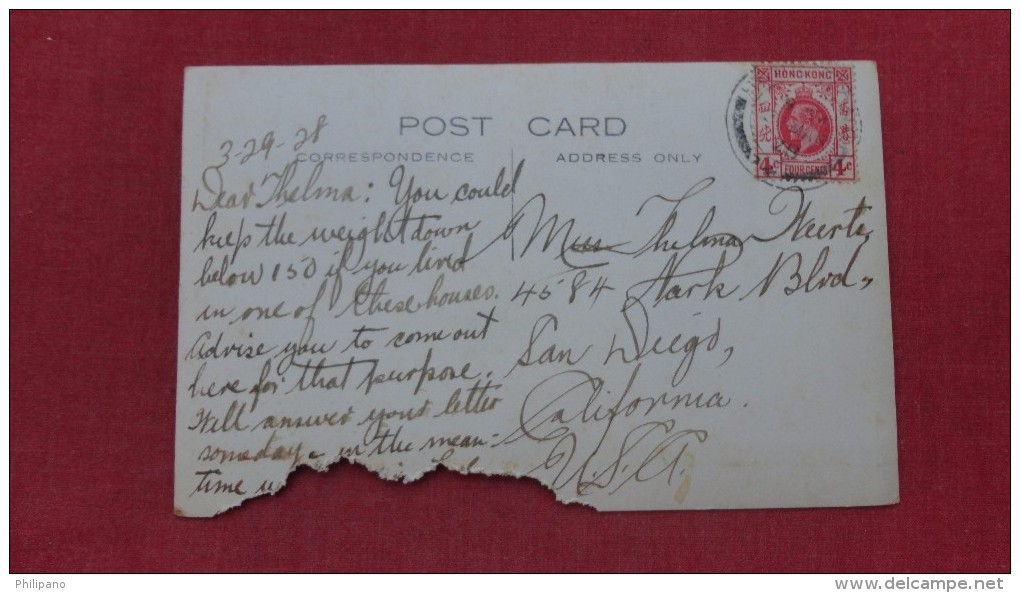 POST CARD
CORRESPONDENCE
ADDRESS ONLY
HONG KONG
4c
FOUR CENTS
4c
3-29-28
Dear Thelma: You could
keep the weight down
below 150 if you lived
in one of these houses.
Advise you to come out
here for that purpose.
Will answer your letter
someday - in the mean-
time
Miss Thelma
4584 Stark Blvd,
San Diego,
California.
U.S.A.
Philipano
www.delcampe.net